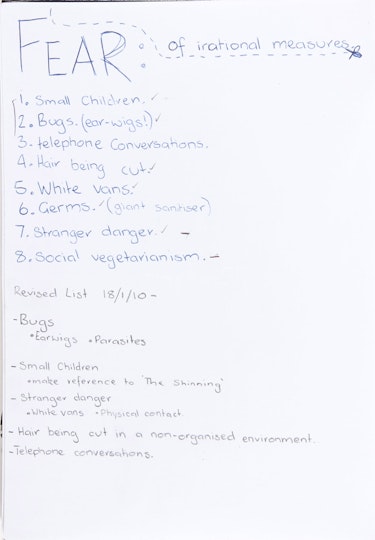 FEAR: of irational measures.
1. Small Children. ✓
2. Bugs. (ear-wigs!) ✓
3. telephone Conversations.
4. Hair being cut. ✓
5. White vans. ✓
6. Germs. ✓ (giant sanitiser)
7. Stranger danger. ✓ –
8. Social vegetarianism. –
Revised List 18/1/10 –
- Bugs
• Earwigs • Parasites
- Small Children
• make reference to 'The Shinning'
- Stranger danger
• White vans • Physical contact
- Hair being cut in a non-organised environment.
- Telephone conversations.